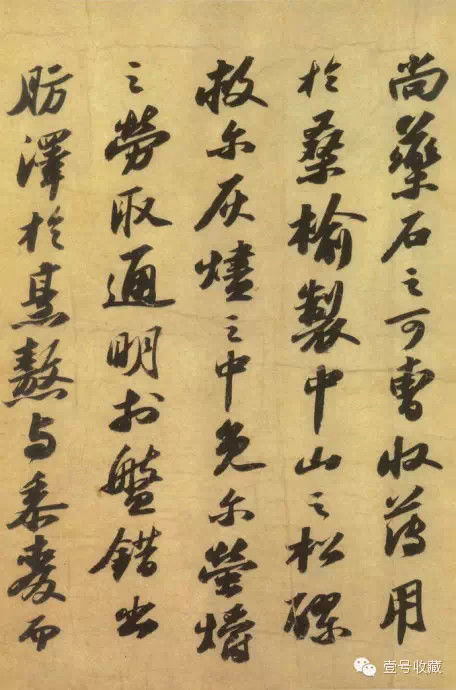 尚藥石之可曹收薄用
於桑榆製中山之松醪
救尔灰燼之中免尔螢爝
之勞取通明於盤錯出
肪澤於烹熬与黍麥而
壹号收藏